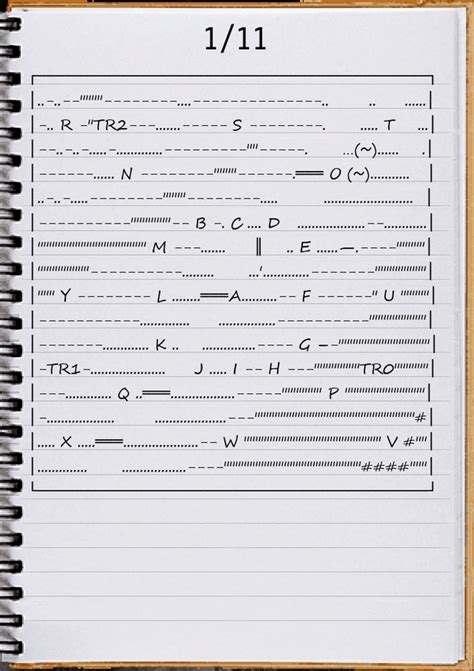 1/11
..-..--''''''''---------....---------------..      ..      ......|
-.. R -"TR2---.......------ S --------.      ..... T    ...|
--..-..-.....-.............------------''''------.        ...(~)......    .|
------...... N ---------''''''''------.═══= O (~)..........|
..-..-......--------------------------.....      ......................|
-----------'''''''''''''-- B -. C .... D ....................--..........|
|'''''''''''''''''''''''''''' M ---.......      ||      .. E ...—.-----'''''''|
|'''''''''''''-----------.........        ...'............-------'''''''''''''|
|'''''' Y --------- L ........═══..A...--- F ------" U ''''''''|
-----------------.....      ........---------------------''''''''''''|
-------........... K ..      ..... ------ G - --'''''''''''''''''''|
-TR1-...................        J ..... I -- H ---''''''''''''TR0'''''''''''|
----...... Q ..═══................------''''''''''''''''' P ''''''''''''|
-.................        ..................-----'''''''''''''''''''''''''''''''''''#|
.... X ...═══....................-- W ''''''''''''''''''''''''''''''''''' V #''''|
.............        .................----''''''''''''''''''''''''''''''''''''####'''''|